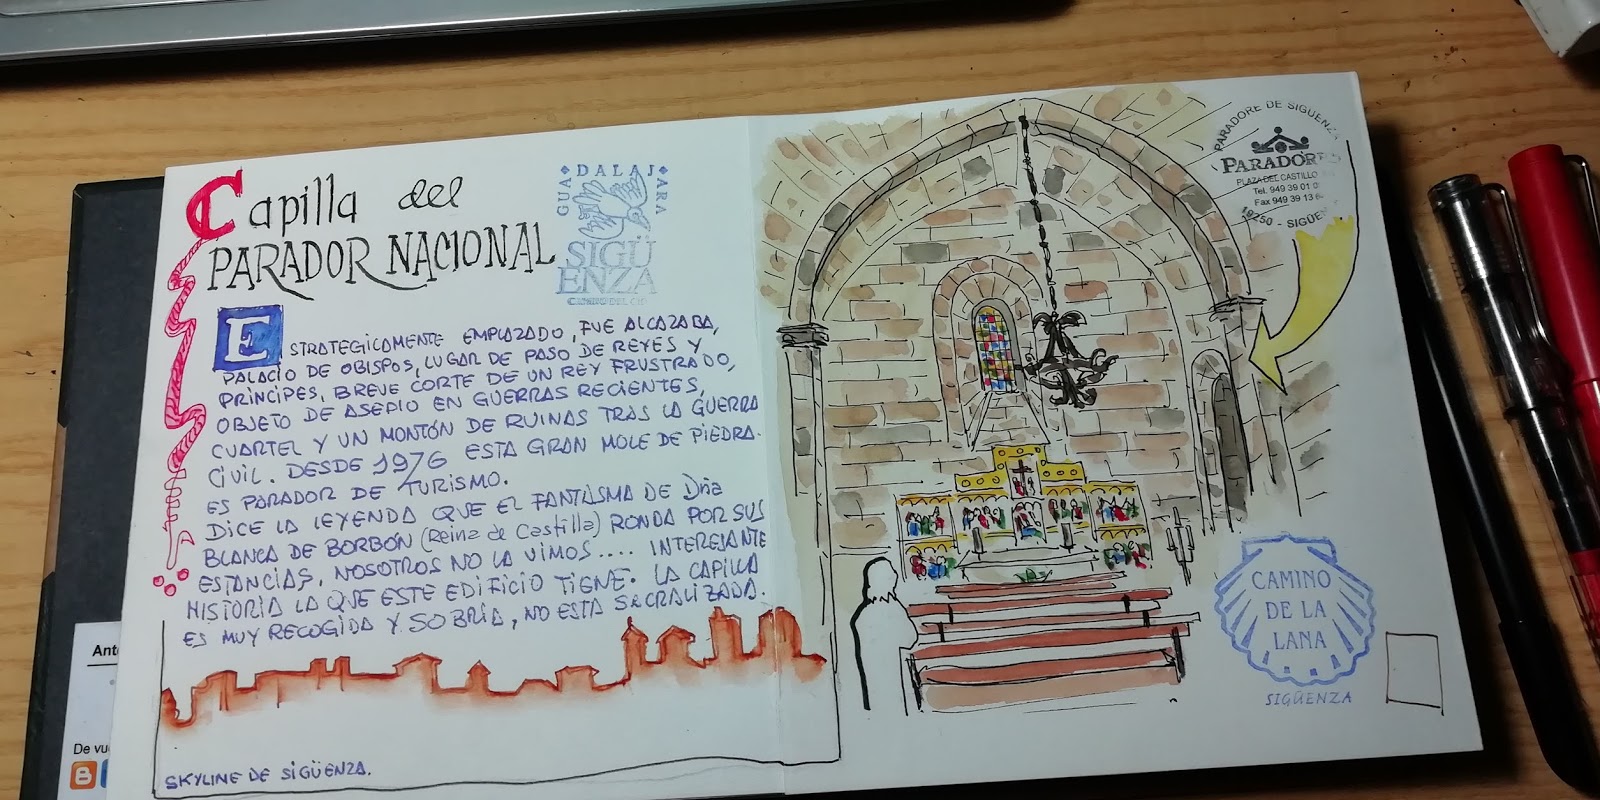 Capilla del
PARADOR NACIONAL
GUA DALAJ ARA
SIGÜ
ENZA
CAMINO DEL CID
ESTRATEGICAMENTE EMPLAZADO, FUE ALCAZABA,
PALACIO DE OBISPOS, LUGAR DE PASO DE REYES Y
PRINCIPES, BREVE CORTE DE UN REY FRUSTRADO,
OBJETO DE ASEDIO EN GUERRAS RECIENTES,
CUARTEL Y UN MONTÓN DE RUINAS TRAS LA GUERRA
CIVIL. DESDE 1976 ESTA GRAN MOLE DE PIEDRA.
ES PARADOR DE TURISMO.
DICE LA LEYENDA QUE EL FANTASMA DE Dña
BLANCA DE BORBÓN (Reina de Castilla) RONDA POR SUS
ESTANCIAS, NOSOTROS NO LA VIMOS.... INTERESANTE
HISTORIA LA QUE ESTE EDIFICIO TIENE. LA CAPILLA
ES MUY RECOGIDA Y SOBRIA, NO ESTA SACRALIZADA.
SKYLINE DE SIGÜENZA.
PARADORE DE SIGÜENZA
PARADORE
PLAZA DEL CASTILLO
Tel. 949 39 01 0
Fax 949 39 13 6
19250 - SIGÜEN
CAMINO
DE LA
LANA
SIGÜENZA
Ant
De vu
B